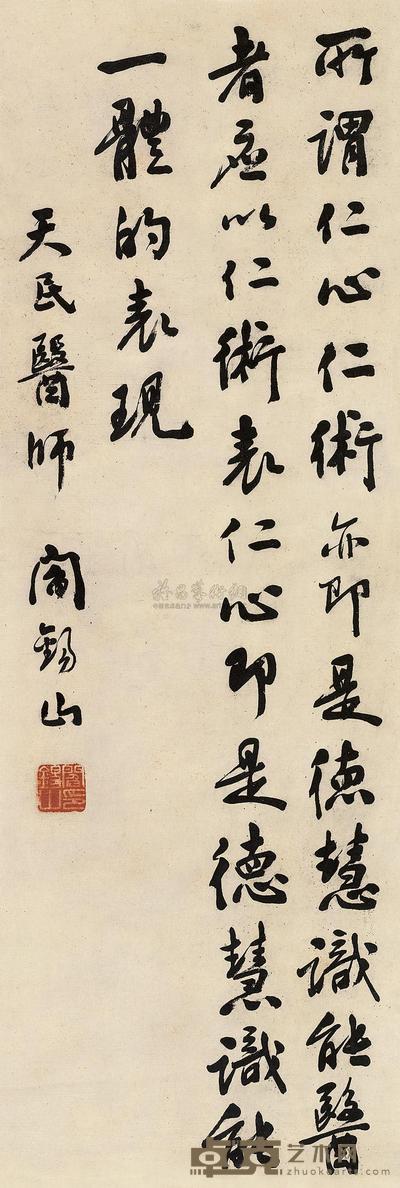 所謂仁心仁術亦即是德慧識能醫
者應以仁術表仁心即是德慧識能
一體的表現
天民醫師 閻錫山
閻錫山印
卓克艺术网
zhuokearts.com